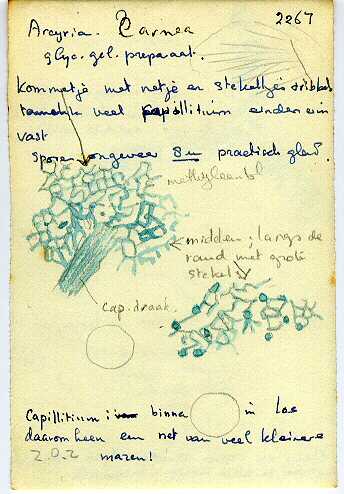 2267
Arcyria. Carnea
glyc. gel. preparaat.
Kommetje met netje en stekeltjes
veel capillitium
vast
Sporen ongeveer 8 µ practisch glad.
methyleenbl
midden; langs de
rand met grote
stekels
cap. draad.
Capillitium binna in los
daarom heen een net van veel kleinere
Z.O.Z mazen!